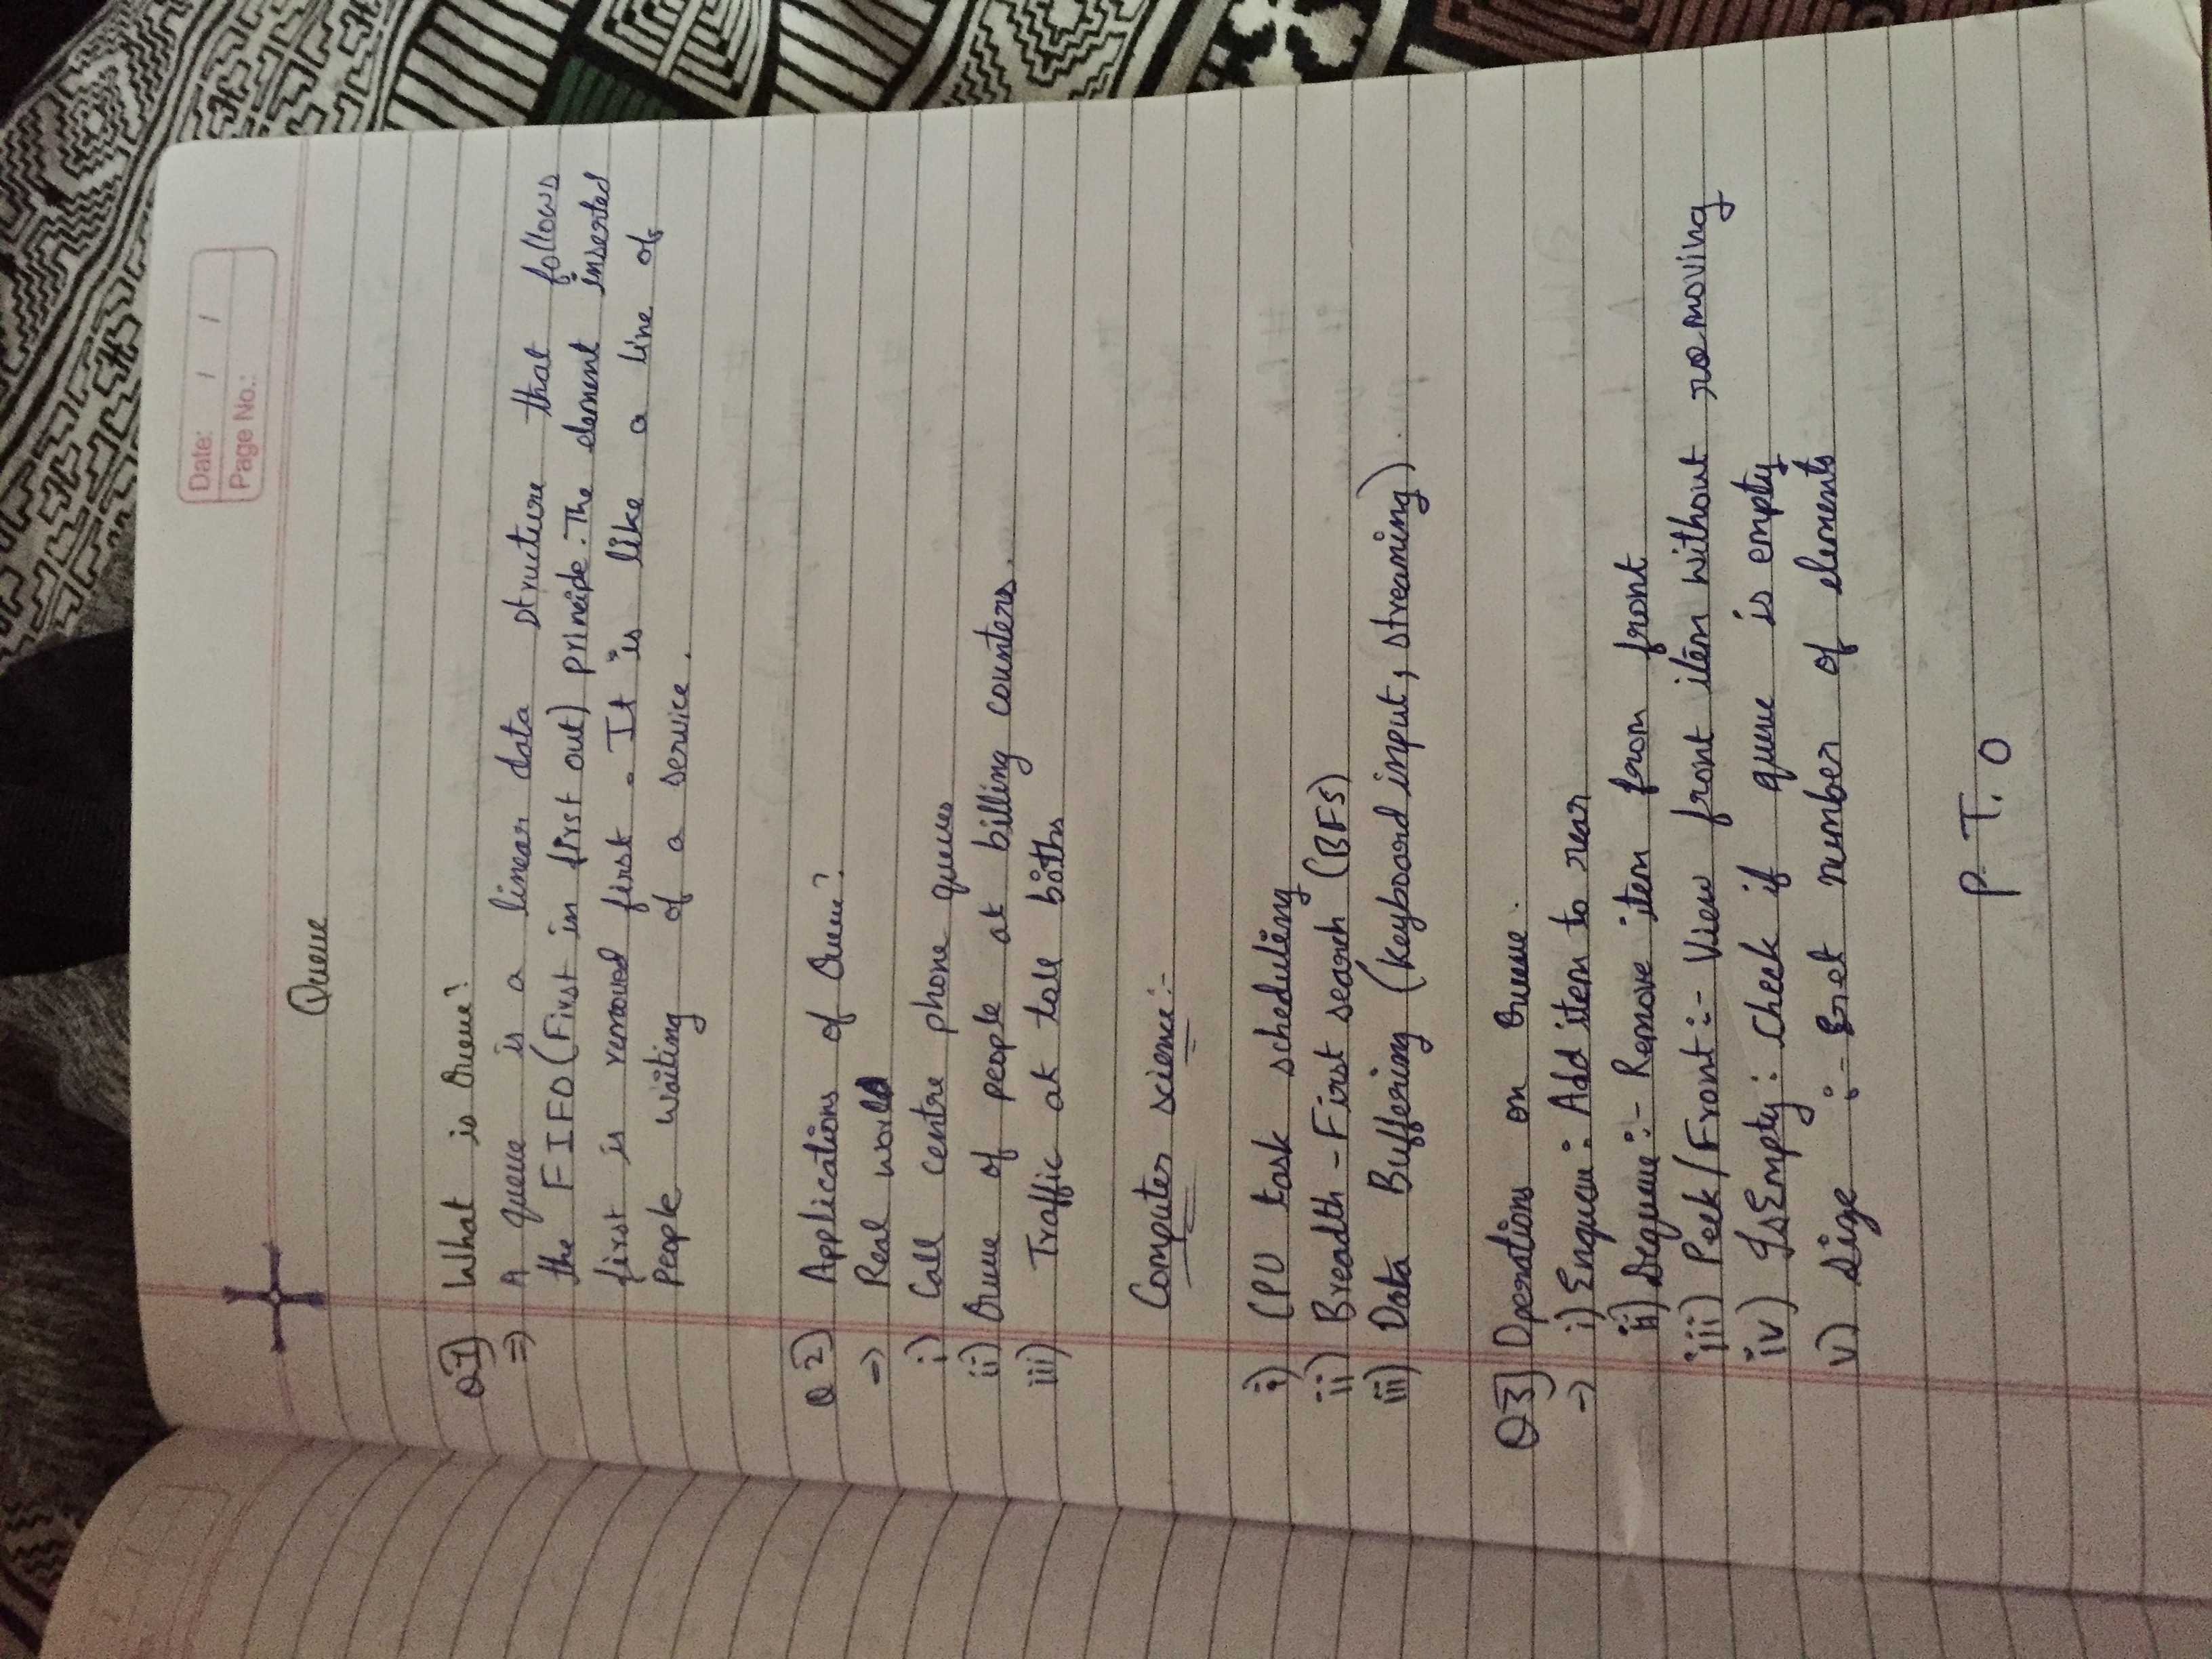 Date: / /
Page No.:
Queue
Q1] What is Queue?
⇒ A queue is a linear data structure that follows
the FIFO (First in first out) principle. The element inserted
first is removed first. It is like a line of
people waiting of a service.
Q2] Applications of Queue?
→ Real world
i) Call centre phone queues
ii) Queue of people at billing counters.
iii) Traffic at toll boths
Computer science:-
i) CPU task scheduling
ii) Breadth - First search (BFS)
iii) Data Buffering (keyboard input, streaming).
Q3] Operations on Queue.
→ i) Enqueue: Add item to rear
ii) Dequeue:- Remove item from front
iii) Peek/Front:- View front item without removing
iv) IsEmpty: Check if queue is empty
v) Size :- Get number of elements
P.T.O